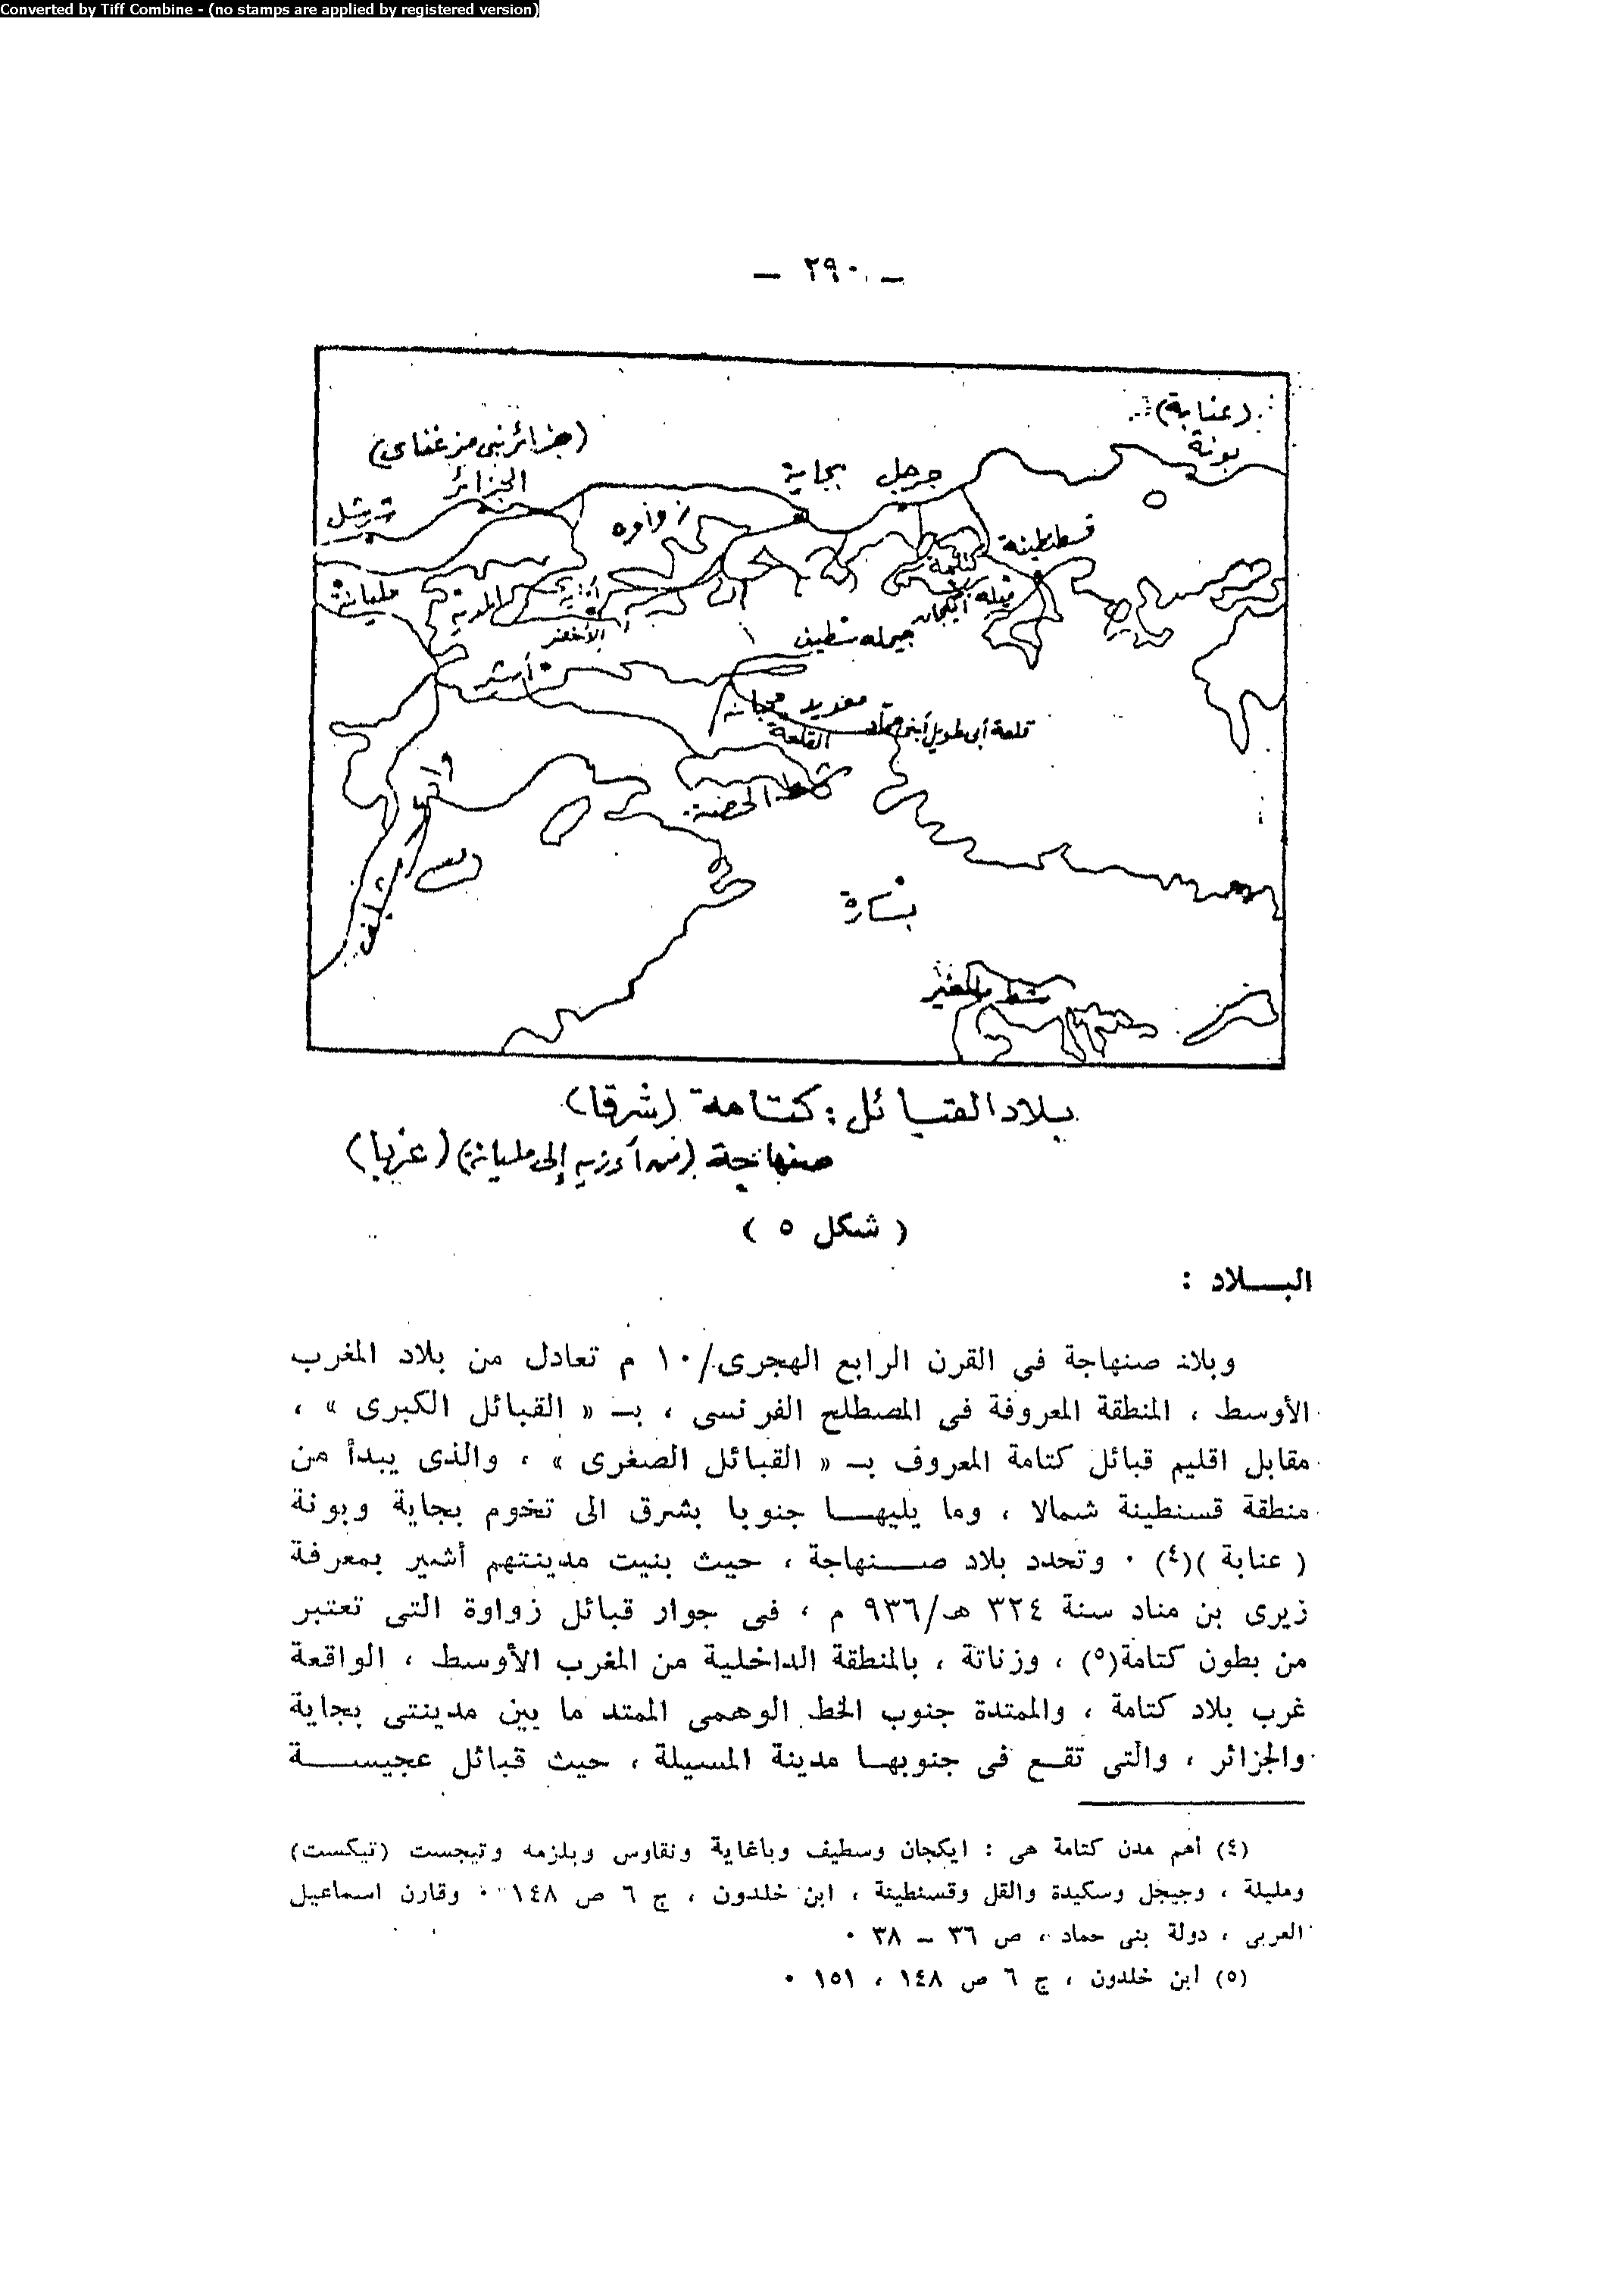 Converted by Tiff Combine - (no stamps are applied by registered version)
— ٢٩٠ —
(عنابة)
بونة
(جزائر بنى مزغناى)
الجزائر
جرجل
بجاية
شرشل
زواوه
قسطنطينة
كتامة
مليانة
المدية
ميله
ايكجان
جيمله سطيف
الأخضر
أشير
مغديد
مجانه
قلعة أبى طويل
القلعة
شط الحضنة
شلف
بسكرة
شط ملغير
بلاد القبائل : كتامة (شرقا)
صنهاجة (من أوزيه إلى مليانة) (غربا)
( شكل ٥ )
البـــلاد :
وبلاد صنهاجة فى القرن الرابع الهجرى/١٠ م تعادل من بلاد المغرب
الأوسط ، المنطقة المعروفة فى المصطلح الفرنسى ، بـ « القبائل الكبرى » ،
مقابل اقليم قبائل كتامة المعروف بـ « القبائل الصغرى » ، والذى يبدأ من
منطقة قسنطينة شمالا ، وما يليهـا جنوبا بشرق الى تخوم بجاية وبونة
( عنابة )(٤) ٠ وتحدد بلاد صـنهاجة ، حيث بنيت مدينتهم أشير بمعرفة
زيرى بن مناد سنة ٣٢٤ هـ/٩٣٦ م ، فى جوار قبائل زواوة التى تعتبر
من بطون كتامة(٥) ، وزناتة ، بالمنطقة الداخلية من المغرب الأوسط ، الواقعة
غرب بلاد كتامة ، والممتدة جنوب الخط الوهمى الممتد ما بين مدينتى بجاية
والجزائر ، والتى تقـع فى جنوبهـا مدينة المسيلة ، حيث قبائل عجيسـة
(٤) أهم مدن كتامة هى : ايكجان وسطيف وباغاية ونقاوس وبلزمه وتيجست (تيكست)
ومليلة ، وجيجل وسكيدة والقل وقسنطينة ، ابن خلدون ، ج ٦ ص ١٤٨ ٠ وقارن اسماعيل
العربى ، دولة بنى حماد ، ص ٣٦ – ٣٨ ٠
(٥) ابن خلدون ، ج ٦ ص ١٤٨ ، ١٥١ ٠